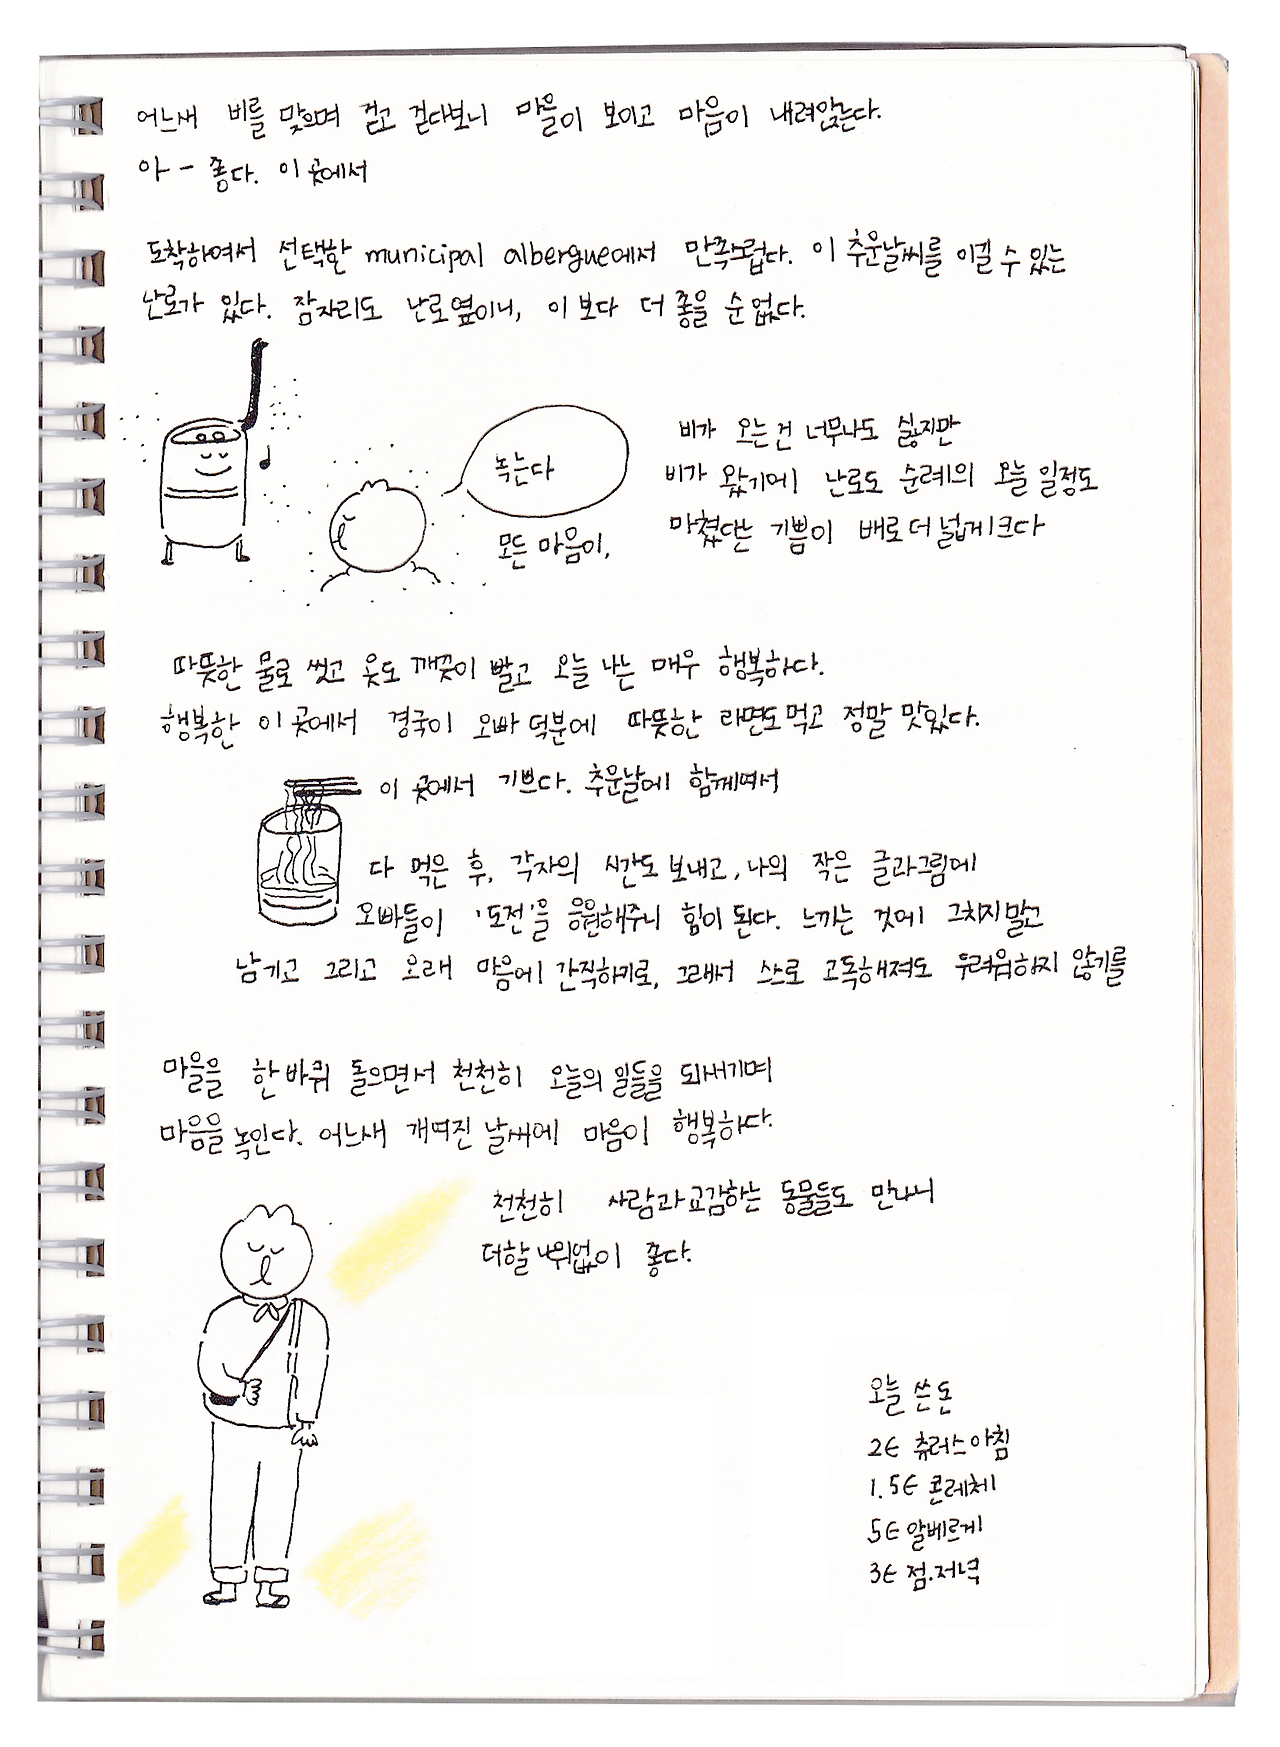 어느새 비를 맞으며 걷고 걷다보니 마을이 보이고 마음이 내려앉는다.
아 - 좋다. 이 곳에서
도착하여서 선택한 municipal albergue에서 만족스럽다. 이 추운날씨를 이길 수 있는
난로가 있다. 잠자리도 난로옆이니, 이 보다 더 좋을 순 없다.
녹는다
모든 마음이,
비가 오는건 너무나도 싫지만
비가 왔기에 난로도 순례의 오늘 일정도
마쳤다는 기쁨이 배로 더 넓게 크다
따뜻한 물로 씻고 옷도 깨끗이 빨고 오늘 나는 매우 행복하다.
행복한 이 곳에서 경국이 오빠 덕분에 따뜻한 라면도 먹고 정말 맛있다.
이 곳에서 기쁘다. 추운날에 함께여서
다 먹은 후, 각자의 시간도 보내고, 나의 작은 글과그림에
오빠들이 '도전'을 응원해주니 힘이 된다. 느끼는 것에 그치지말고
남기고 그리고 오래 마음에 간직하기로, 그래서 스스로 고독해져도 두려워하지 않기를
마을을 한 바퀴 돌으면서 천천히 오늘의 일들을 되새기며
마음을 녹인다. 어느새 개여진 날씨에 마음이 행복하다.
천천히 사람과 교감하는 동물들도 만나니
더할 나위없이 좋다.
오늘 쓴 돈
2€ 츄러스아침
1.5€ 콘레체
5€ 알베르게
3€ 점.저녁